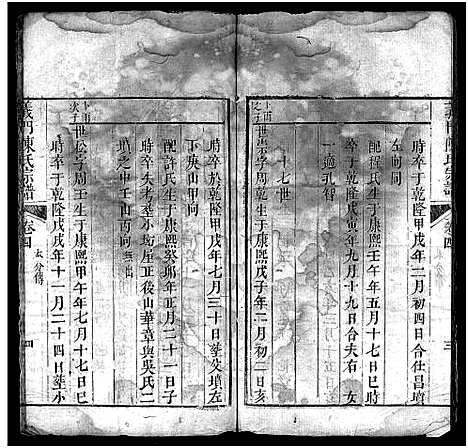 時卒于乾隆甲戌年二月初四日合仕昌墳
左向同
配程氏生于康熙壬午年五月十七日巳時
卒于乾隆戊寅年九月十九日合夫右 女
一適孔智
十七世
字周 生于康熙戊子年二月初二日亥
義門陳氏宗譜 卷四 三
時卒於乾隆 戌年七月三十日塟父墳左
丁庚山甲向
配許氏生于康熙癸卯年正月二十一日子
時卒失考塟小坊崖正後山華章與吳氏二
墳之中壬山丙向 無出
世松字周 生于康熙甲午年七月十七日巳
時卒于乾隆戊戌年十一月二十四日塟小
義門陳氏宗譜 卷四 太分 四